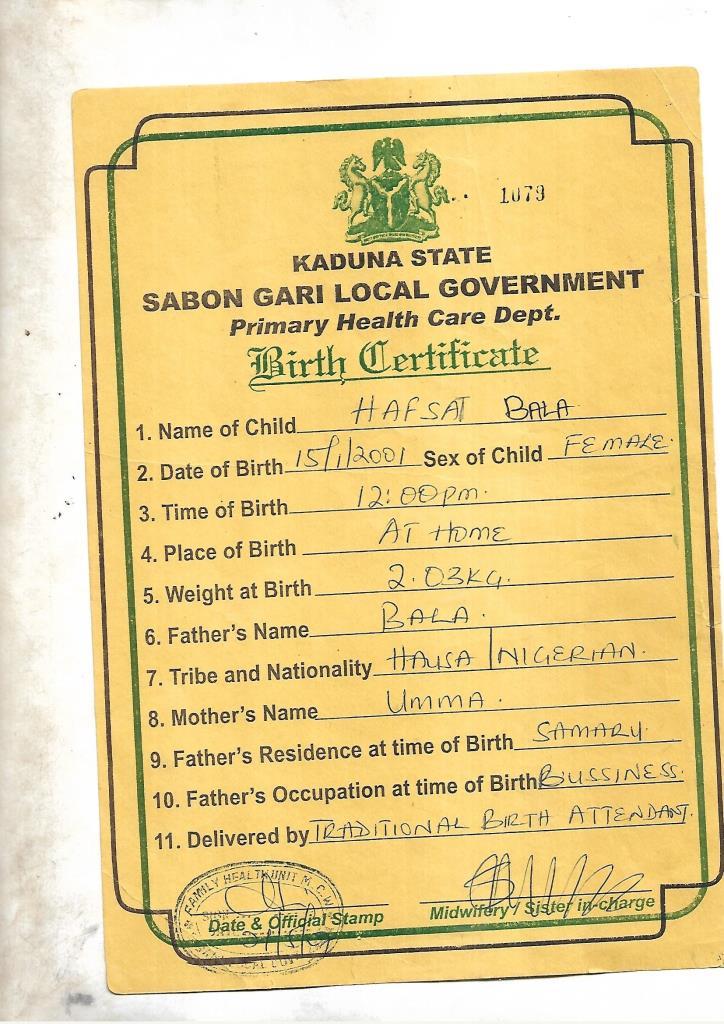 1079
KADUNA STATE
SABON GARI LOCAL GOVERNMENT
Primary Health Care Dept.
Birth Certificate
1. Name of Child HAFSAT BALA
2. Date of Birth 15/1/2001 Sex of Child FEMALE.
3. Time of Birth 12:00pm.
4. Place of Birth AT HOME
5. Weight at Birth 2.03KG.
6. Father's Name BALA.
7. Tribe and Nationality HAUSA | NIGERIAN.
8. Mother's Name UMMA.
9. Father's Residence at time of Birth SAMARU.
10. Father's Occupation at time of Birth BUSSINESS.
11. Delivered by TRADITIONAL BIRTH ATTENDANT.
FAMILY HEALTH UNIT M.C.W.
Date & Official Stamp
Midwifery / Sister in-charge